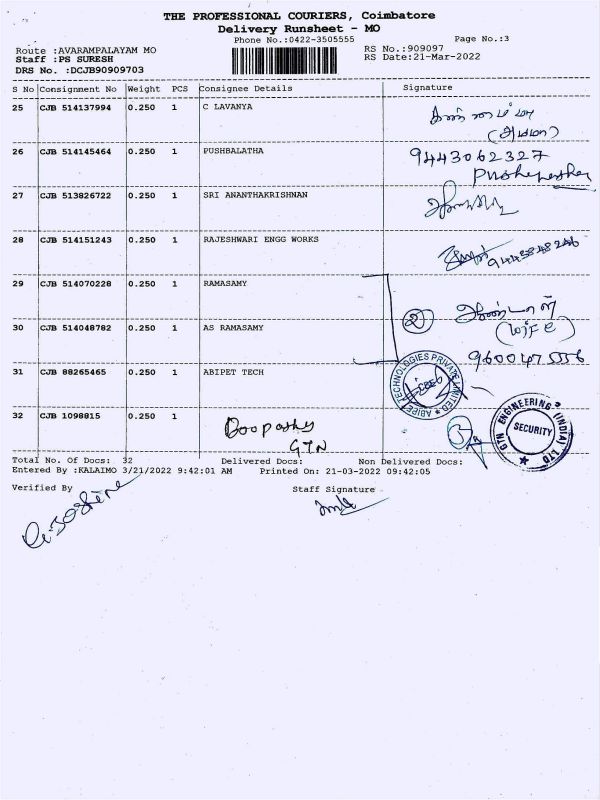 THE PROFESSIONAL COURIERS, Coimbatore
Delivery Runsheet - MO
Phone No.:0422-3505555
Page No.:3
Route :AVARAMPALAYAM MO
RS No.:909097
Staff :PS SURESH
RS Date:21-Mar-2022
DRS No. :DCJB90909703
S No Consignment No Weight PCS Consignee Details Signature
25 CJB 514137994 0.250 1 C LAVANYA
(அம்மா)
26 CJB 514145464 0.250 1 PUSHBALATHA 9443062327
27 CJB 513826722 0.250 1 SRI ANANTHAKRISHNAN
28 CJB 514151243 0.250 1 RAJESHWARI ENGG WORKS
29 CJB 514070228 0.250 1 RAMASAMY
2 ஆண்டாள்
30 CJB 514048782 0.250 1 AS RAMASAMY (wife)
31 CJB 88265465 0.250 1 ABIPET TECH
ABIPET TECHNOLOGIES PRIVATE LIMITED
32 CJB 1098815 0.250 1
GTN
GTN ENGINEERING (INDIA) LTD
SECURITY
Total No. Of Docs: 32 Delivered Docs: Non Delivered Docs:
Entered By :KALAIMO 3/21/2022 9:42:01 AM Printed On: 21-03-2022 09:42:05
Verified By Staff Signature